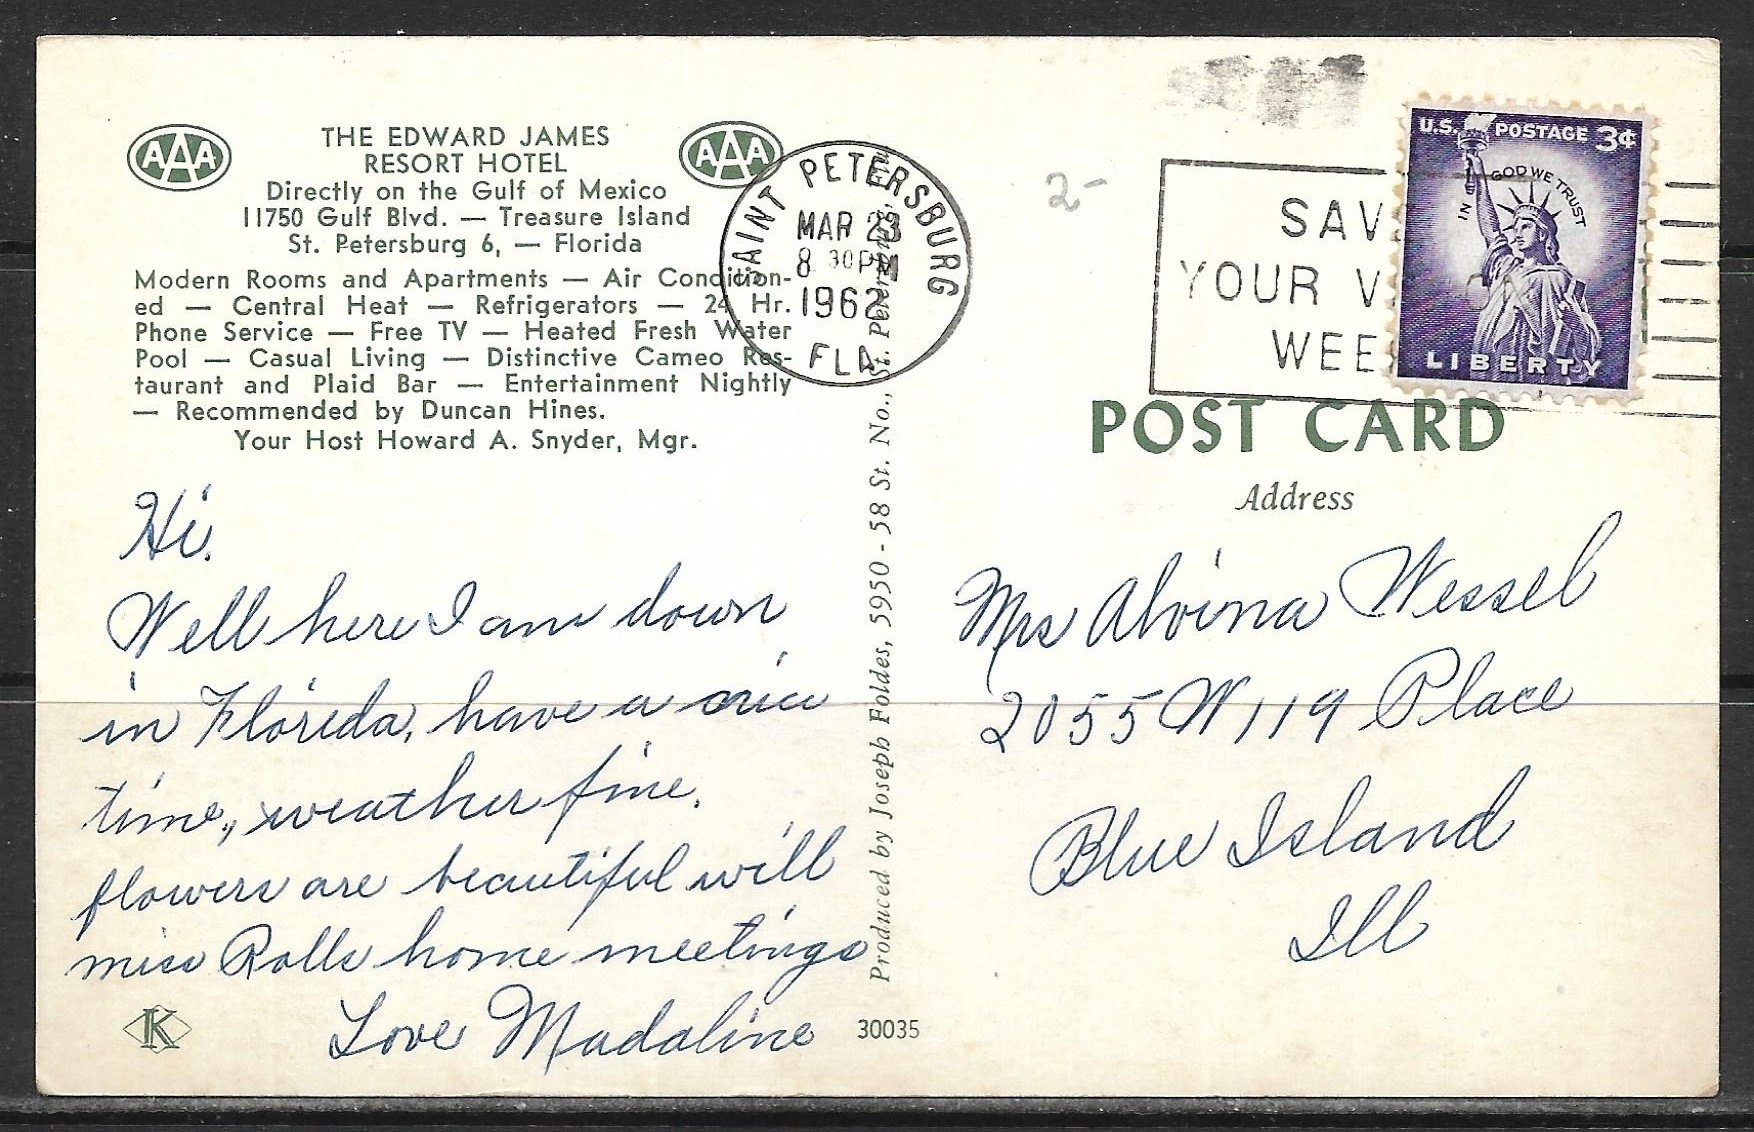 AAA
THE EDWARD JAMES
RESORT HOTEL
AAA
Directly on the Gulf of Mexico
11750 Gulf Blvd. — Treasure Island
St. Petersburg 6, — Florida
Modern Rooms and Apartments — Air Condition-
ed — Central Heat — Refrigerators — 24 Hr.
Phone Service — Free TV — Heated Fresh Water
Pool — Casual Living — Distinctive Cameo Res-
taurant and Plaid Bar — Entertainment Nightly
— Recommended by Duncan Hines.
Your Host Howard A. Snyder, Mgr.
Hi.
Well here I am down
in Florida, have a nice
time, weather fine.
flowers are beautiful will
miss Rolls home meetings
Love Madaline
K
30035
Produced by Joseph Foldes, 5950 - 58 St. No., St. Petersburg, Fla.
SAINT PETERSBURG
MAR 23
8 30 PM
1962
FLA
2-
SAV
YOUR V
WEE
U.S. POSTAGE 3¢
IN GOD WE TRUST
LIBERTY
POST CARD
Address
Mrs Alvina Wessel
2055 W 119 Place
Blue Island
Ill